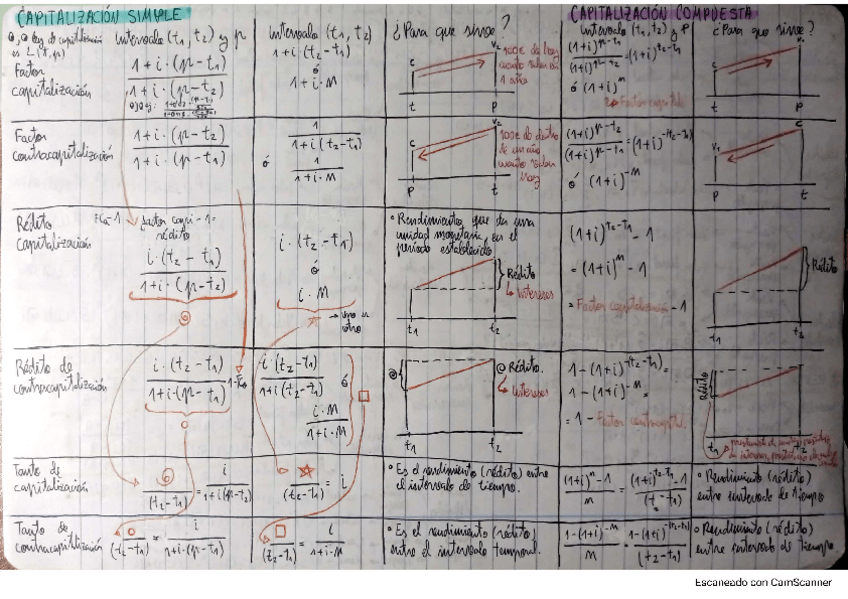 CAPITALIZACIÓN SIMPLE
CAPITALIZACIÓN COMPUESTA
intervalo (t₁, t₂) y p
intervalo (t₁, t₂)
¿Para que sirve?
intervalo (t₁, t₂) y p
¿Para que sirve?
Factor
capitalización
1 + i · (p - t₁)
1 + i · (p - t₂)
1 + i · (t₂ - t₁)
ó
1 + i · n
C
V₂
t
p
100€ de hoy
cuanto valen en
1 año
(1+i)^(p-t₁) / (1+i)^(p-t₂) = (1+i)^(t₂-t₁)
ó (1+i)^n
→ Factor capital
C
t
P
Factor
contracapitalización
1 + i · (p - t₂)
1 + i · (p - t₁)
1 / (1 + i (t₂ - t₁))
ó
1 / (1 + i · n)
C
V₂
P
t
100€ de dentro
de un año
cuanto valen
hoy
(1+i)^(p-t₂) / (1+i)^(p-t₁) = (1+i)^-(t₂-t₁)
ó (1+i)^-n
V₁
C
P
t
Rédito
capitalización
factor capi - 1 =
rédito
i · (t₂ - t₁)
1 + i · (p - t₂)
i · (t₂ - t₁)
ó
i · n
• Rendimientos que da una
unidad monetaria, en el
período establecido
Rédito
↳ intereses
t₁
t₂
(1+i)^(t₂-t₁) - 1
= (1+i)^n - 1
= Factor capitalización - 1
Rédito
t₁
t₂
Rédito de
contracapitalización
i · (t₂ - t₁)
1 + i · (p - t₁)
i · (t₂ - t₁) / (1 + i (t₂ - t₁)) ó
i · n
1 + i · n
Rédito.
↳ intereses
t₁
t₂
1 - (1+i)^-(t₂-t₁) =
1 - (1+i)^-n =
= 1 - Factor contracapital
rédito
t₁
t₂
Tanto de
capitalización
/ (t₂ - t₁) = i / (1 + i (p - t₂))
☆ / (t₂ - t₁) = i
• Es el rendimiento (rédito) entre
el intervalo de tiempo.
((1+i)^n - 1) / n = ((1+i)^(t₂-t₁) - 1) / (t₂ - t₁)
• Rendimiento (rédito)
entre intervalo de tiempo
Tanto de
contracapitalización
○ / (t₂ - t₁) = i / (1 + i · (p - t₁))
□ / (t₂ - t₁) = i / (1 + i · n)
• Es el rendimiento (rédito)
entre el intervalo temporal.
(1 - (1+i)^-n) / n = (1 - (1+i)^-(t₂-t₁)) / (t₂ - t₁)
• Rendimiento (rédito)
entre intervalo de tiempo.
Escaneado con CamScanner